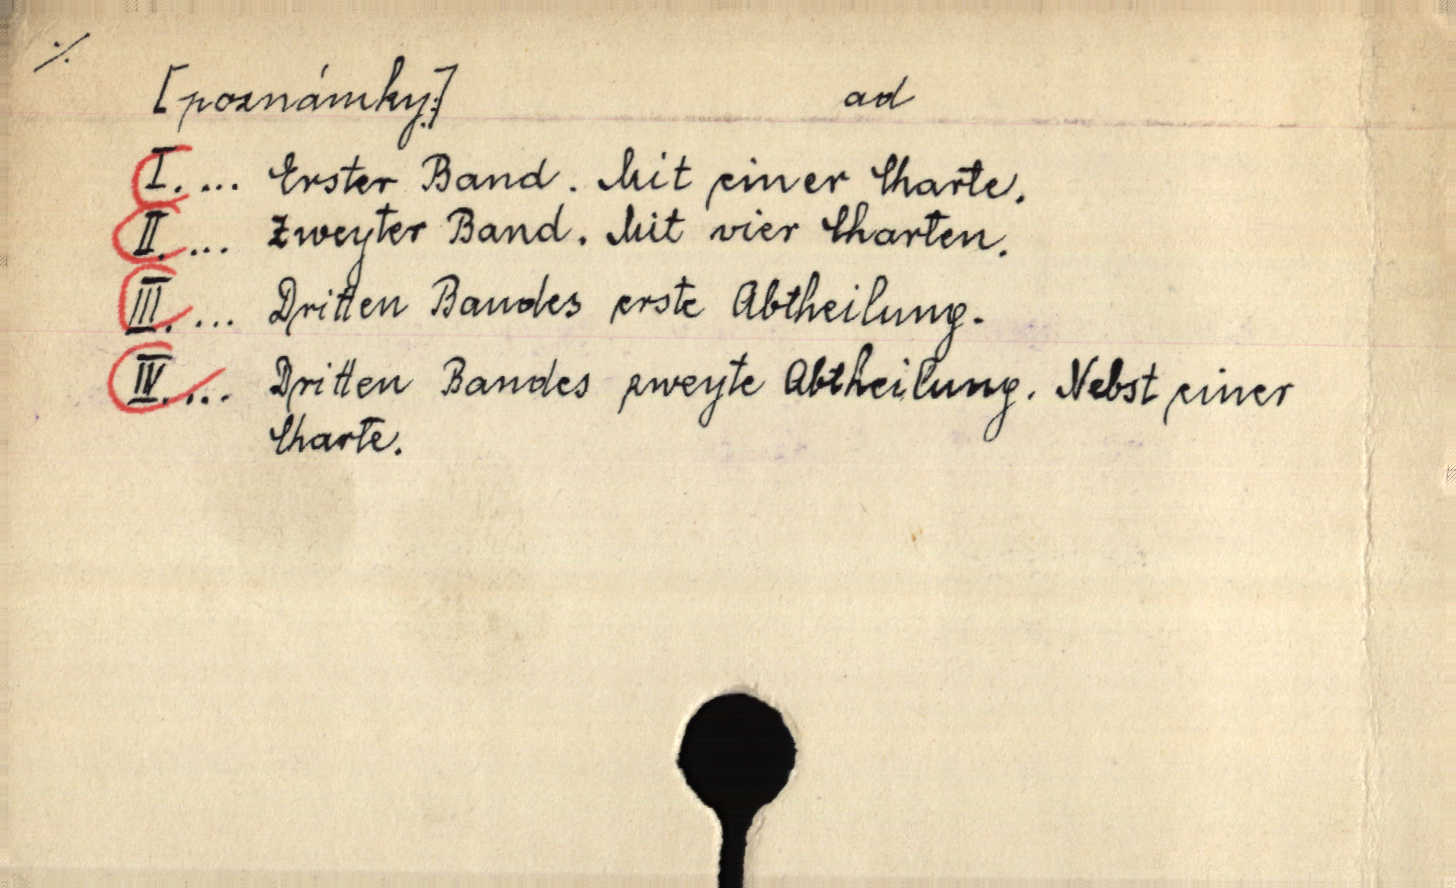 ./.
[poznámky:] ad
I. ... Erster Band. Mit einer Charte.
II. ... Zweyter Band. Mit vier Charten.
III. ... Dritten Bandes erste Abtheilung.
IV. ... Dritten Bandes zweyte Abtheilung. Nebst einer
Charte.